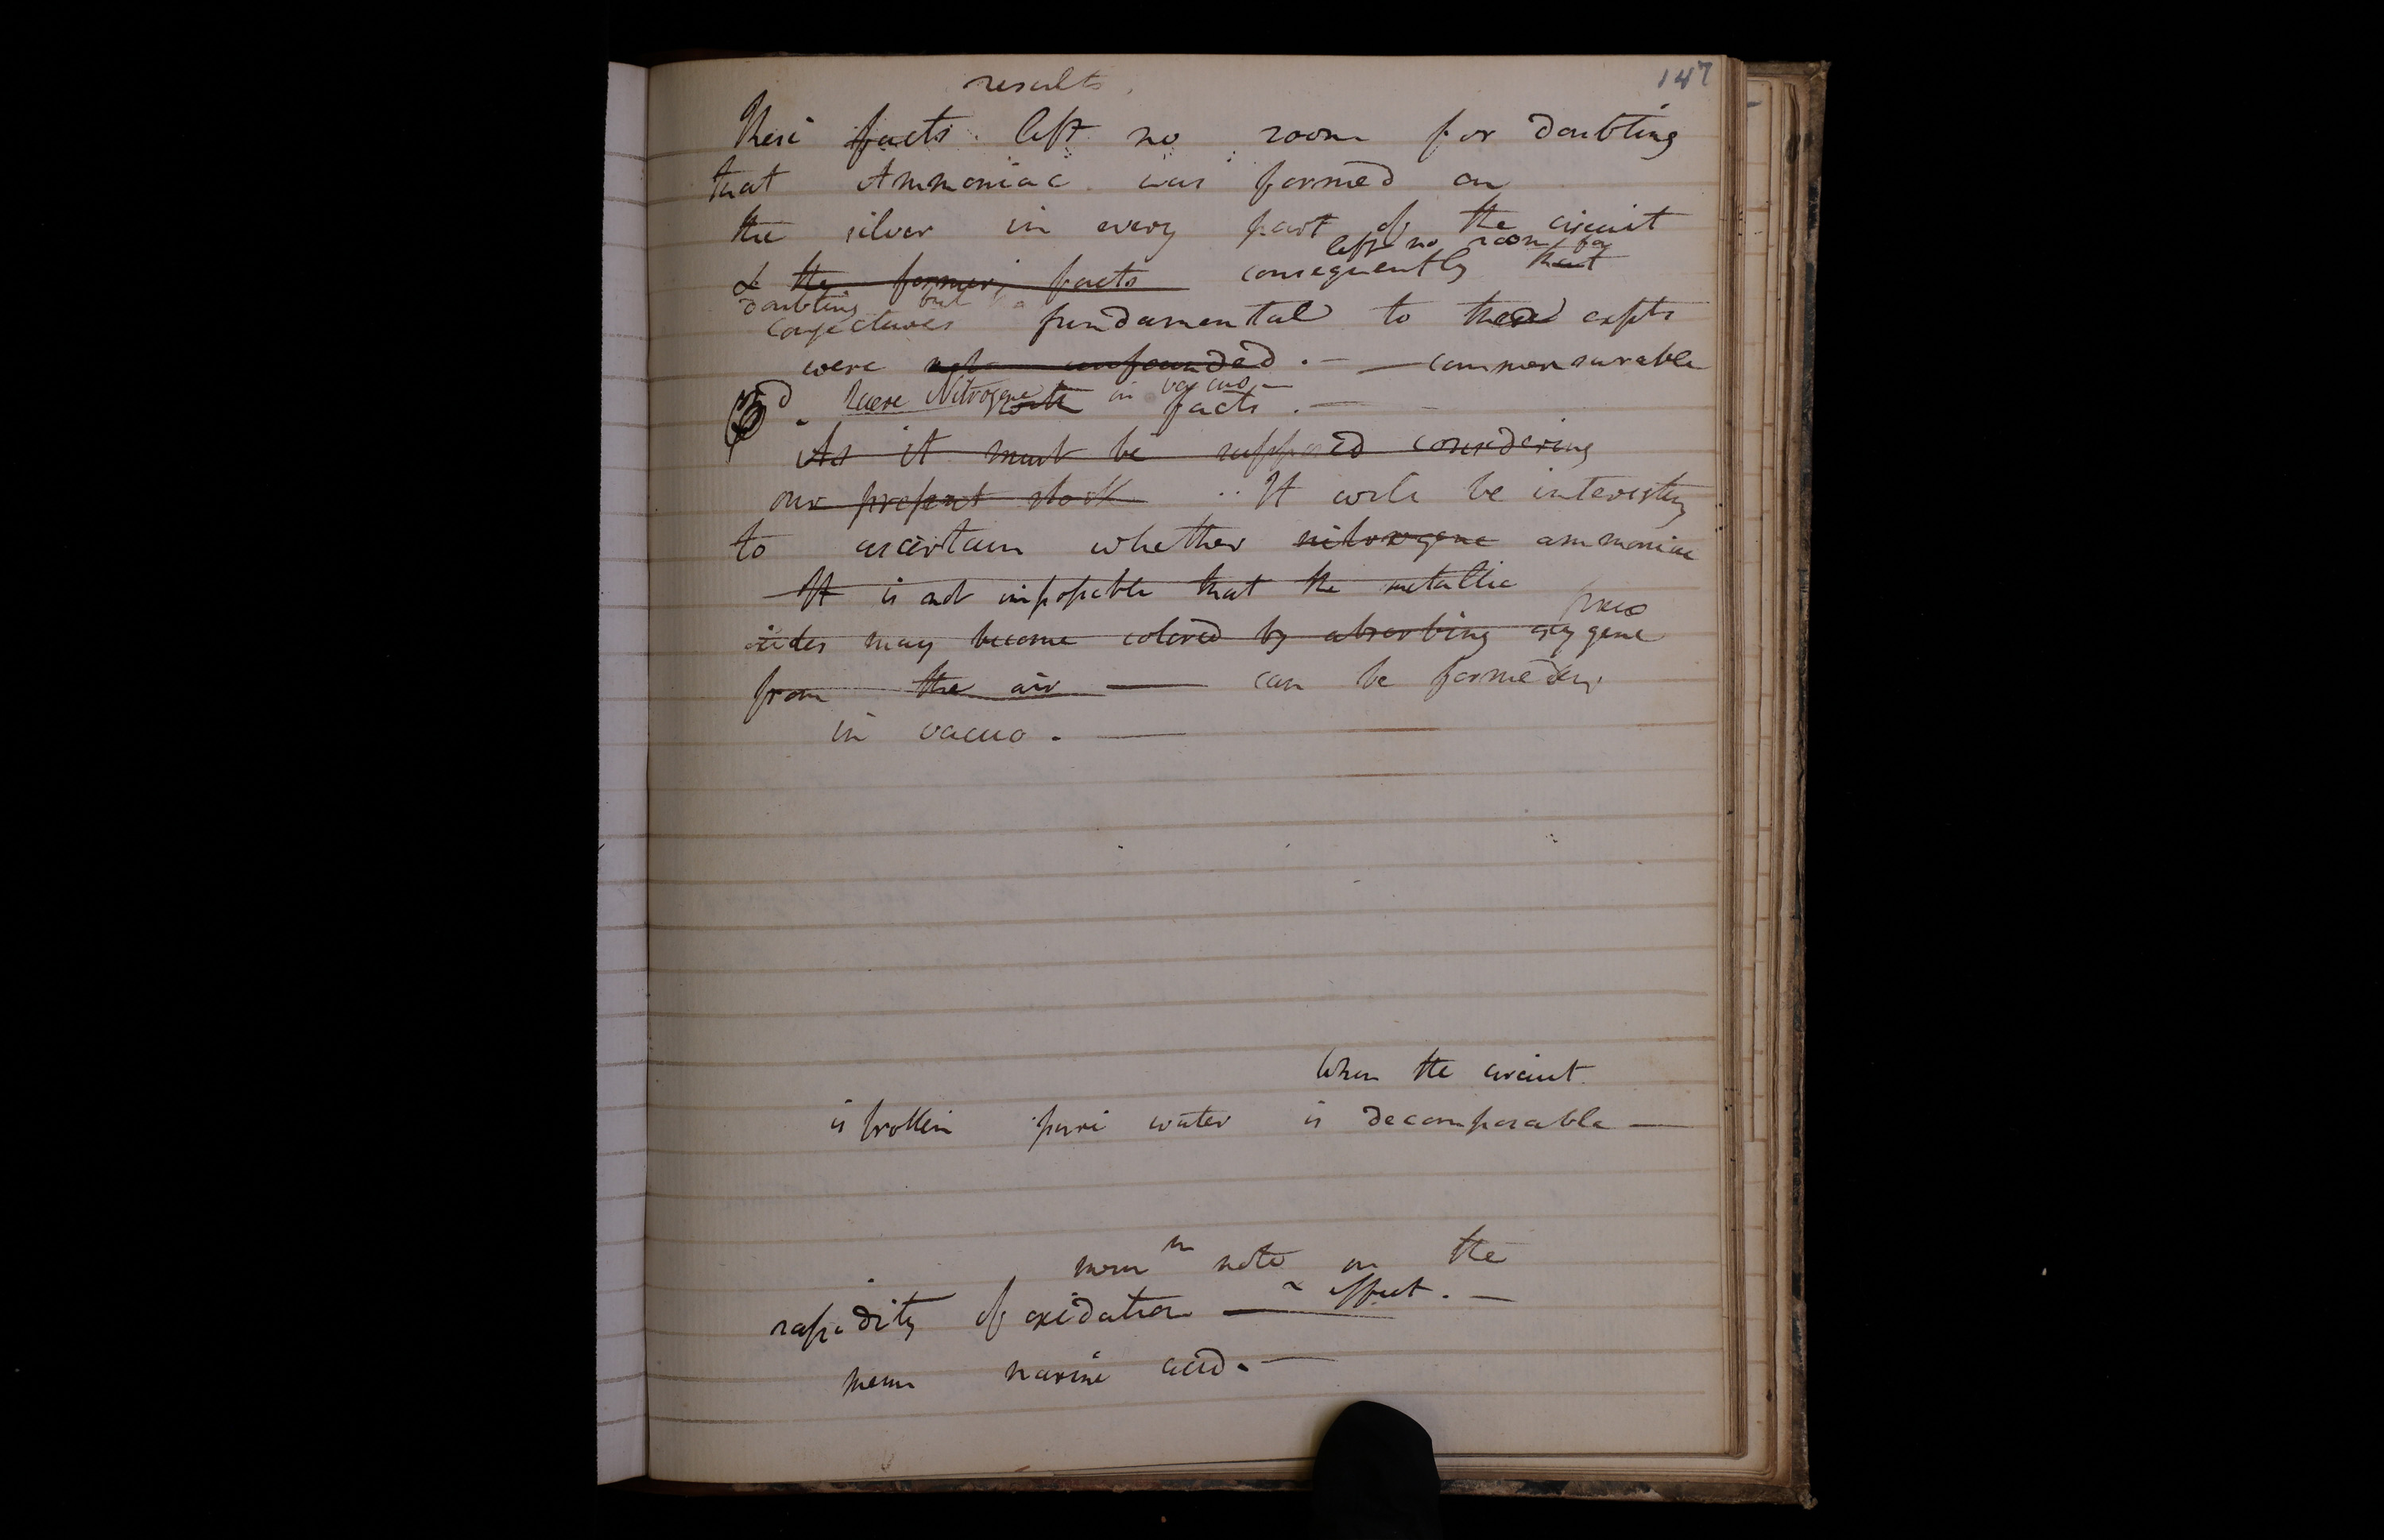 147
results.
These facts left no room for doubting
that Ammoniac was formed on
the silver in every part of the circuit
left no room for
& the former facts consequently that
doubting but
conjectures fundamental to these expts
were not unfounded. — — commensurable
Quere Nitrogene in vacuo —
with facts. —
As it must be supposed considering
our present stock It will be interesting
to ascertain whether nitrogene ammoniac
It is not impossible that the metallic
oxides may become colored by absorbing oxygene
from the air — can be formed
in vacuo. —
When the circuit
is broken pure water is decomposable —
mem note on the
rapidity of oxidation — effect. —
mem marine acid. —